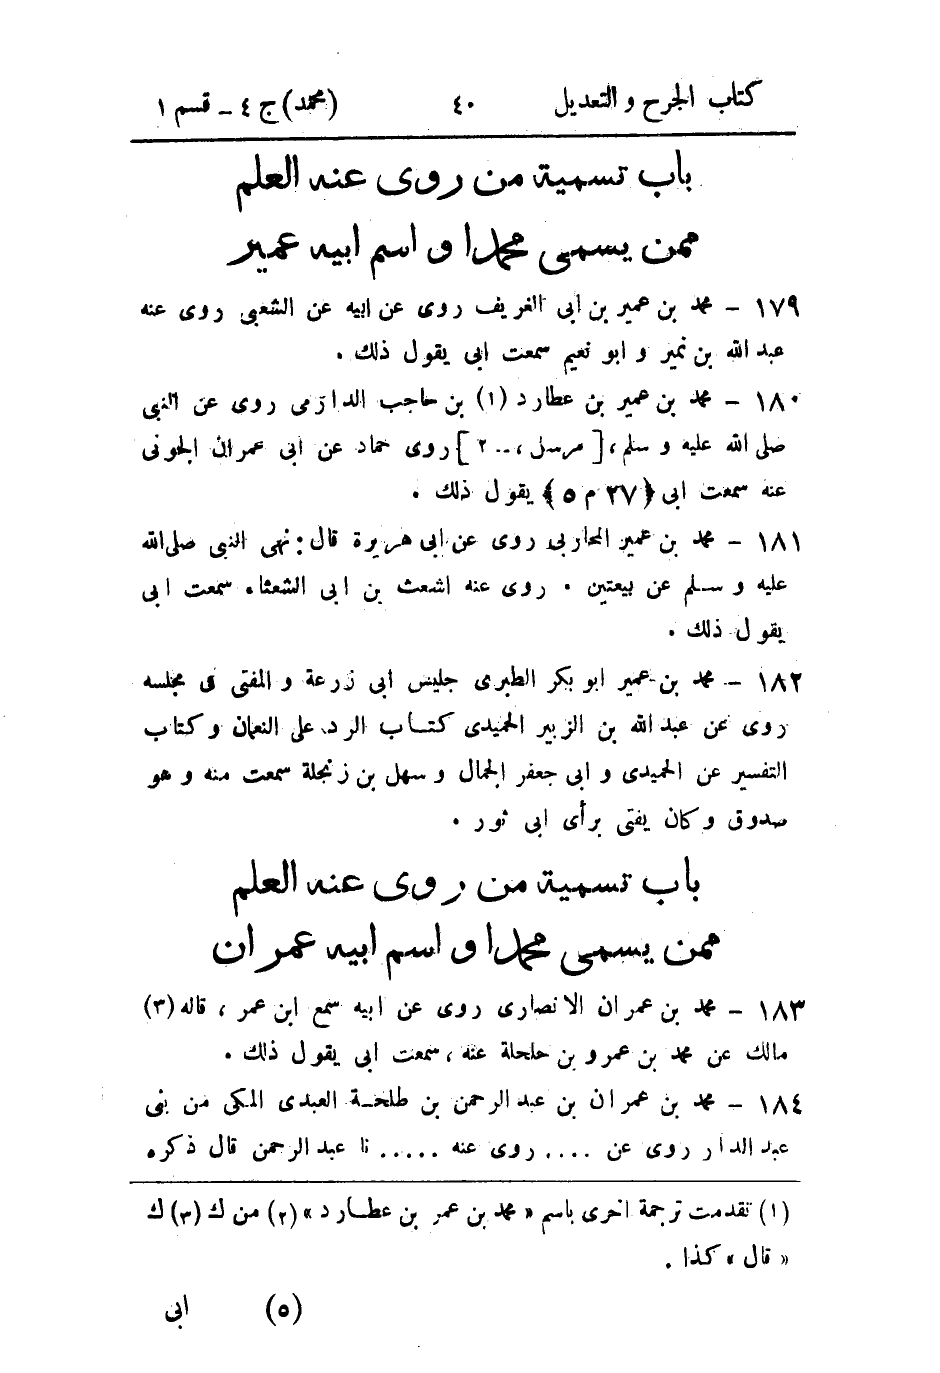 كتاب الجرح والتعديل ٤٠ (محمد) ج ٤ - قسم ١
باب تسمية من روى عنه العلم
ممن يسمى محمدا و اسم ابيه عمير
١٧٩ - محمد بن عمير بن ابى الغريف روى عن ابيه عن الشعبى روى عنه
عبد الله بن نمير و ابو نعيم سمعت ابى يقول ذلك .
١٨٠ - محمد بن عمير بن عطارد (١) بن حاجب الدارمى روى عن النبى
صلى الله عليه و سلم، [ مرسل ، .. ٢ ] روى حماد عن ابى عمران الجونى
عنه سمعت ابى ﴿ ٢٧ م ٥ ﴾ يقول ذلك .
١٨١ - محمد بن عمير المحاربى روى عن ابى هريرة قال: نهى النبى صلى الله
عليه و سلم عن بيعتين . روى عنه اشعث بن ابى الشعثاء سمعت ابى
يقول ذلك .
١٨٢ - محمد بن عمير ابو بكر الطبرى جليس ابى زرعة و المفتى فى مجلسه
روى عن عبد الله بن الزبير الحميدى كتاب الرد على النعمان و كتاب
التفسير عن الحميدى و ابى جعفر الجمال و سهل بن زنجلة سمعت منه و هو
صدوق و كان يفتى برأى ابى ثور .
باب تسمية من روى عنه العلم
ممن يسمى محمدا و اسم ابيه عمران
١٨٣ - محمد بن عمران الانصارى روى عن ابيه سمع ابن عمر ، قاله (٣)
مالك عن محمد بن عمرو بن حلحلة عنه ، سمعت ابى يقول ذلك .
١٨٤ - محمد بن عمران بن عبد الرحمن بن طلحة العبدى المكى من بنى
عبد الدار روى عن .... روى عنه ..... نا عبد الرحمن قال ذكره
(١) تقدمت ترجمة اخرى باسم « محمد بن عمر بن عطارد » (٢) من ك (٣) ك
« قال » كذا .
(٥) ابى